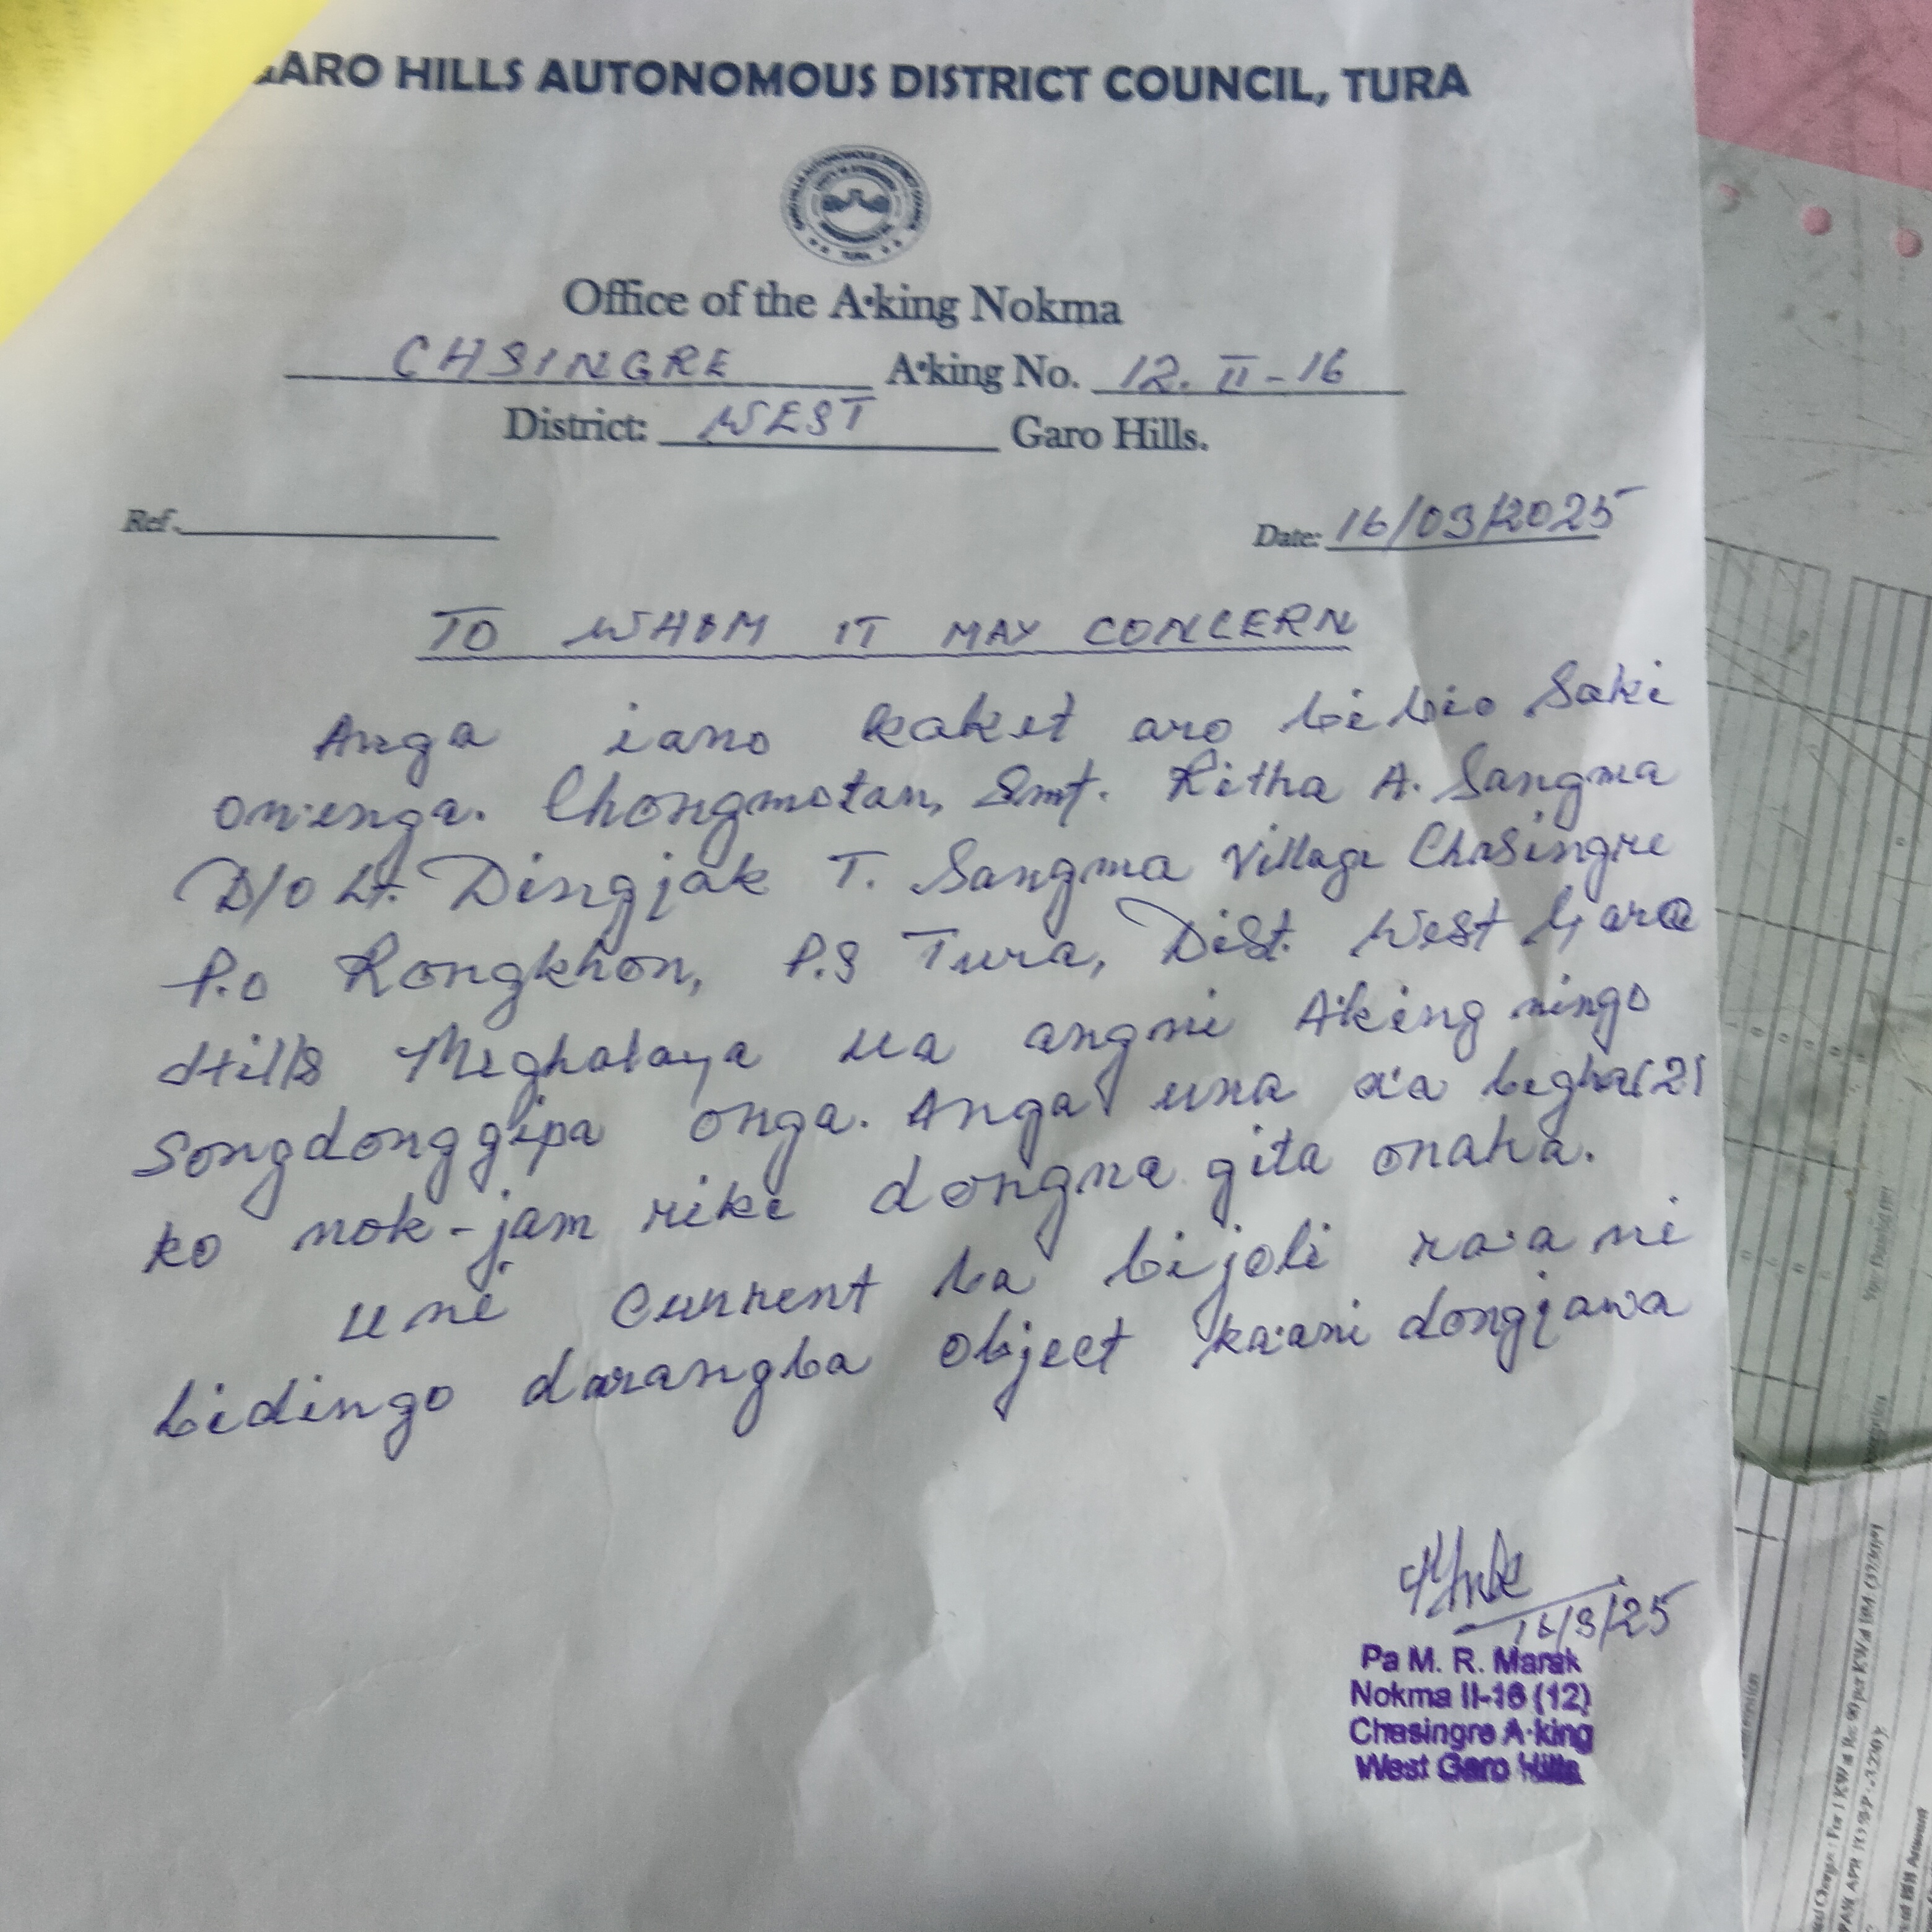 GARO HILLS AUTONOMOUS DISTRICT COUNCIL, TURA
TURA
Office of the A·king Nokma
CHSINGRE A·king No. 12. II-16
District: WEST Garo Hills.
Ref. Date: 16/03/2025
TO WHOM IT MAY CONCERN
Anga iano kaket aro bibio Saki
on·enga. Chongmotan, Smt. Ritha A. Sangma
D/O Lt. Dingjak T. Sangma Village Chasingre
P.O Rongkhon, P.S Tura, Dist. West Garo
Hills Meghalaya ua angni A·king ningo
Songdonggipa onga. Anga una a·a bigha(2)
ko nok-jam rike dongna gita onaha.
Uni Current ba bijoli ra·a ni
bidingo darangba object ka·ani dongjawa
16/3/25
Pa M. R. Marak
Nokma II-16 (12)
Chasingre A·king
West Garo Hills